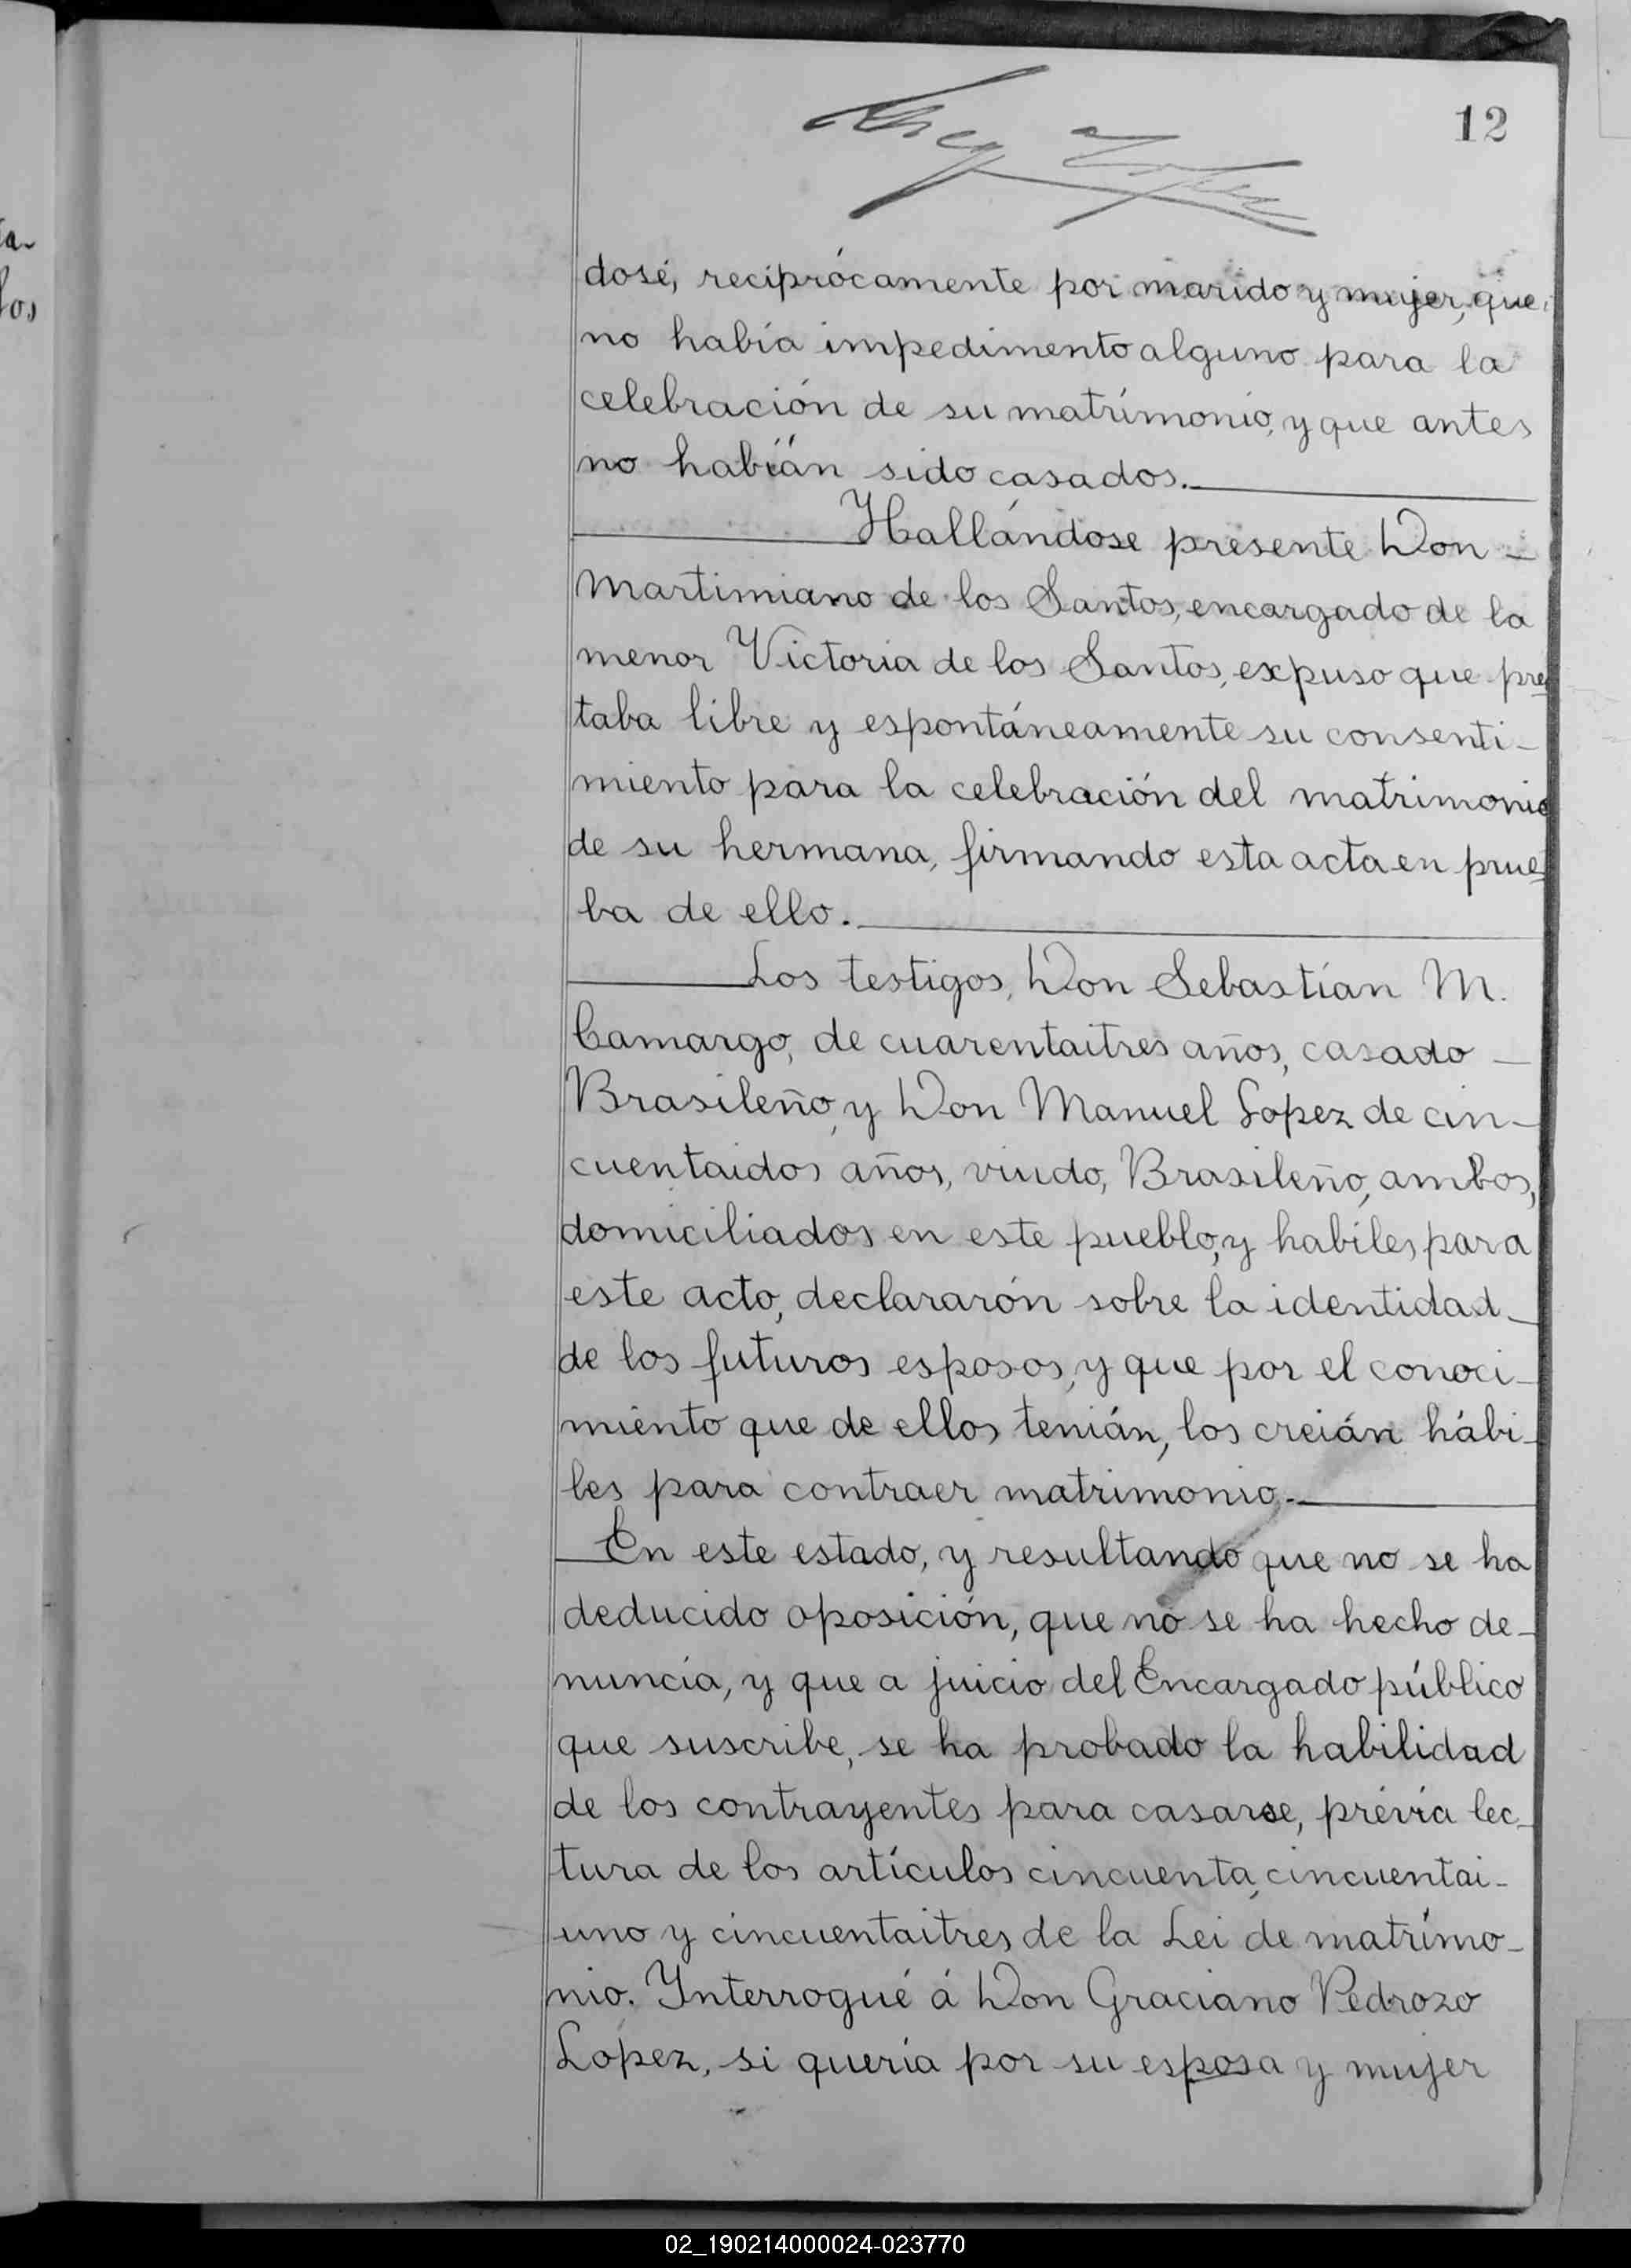 12
dosé, reciprócamente por marido y mujer, que
no había impedimento alguno para la
celebración de su matrimonio, y que antes
no habián sido casados.
Hallándose presente Don
Martimiano de los Santos, encargado de la
menor Victoria de los Santos, expuso que pre
taba libre y espontáneamente su consenti-
miento para la celebración del matrimonio
de su hermana, firmando esta acta en prue
ba de ello.
Los testigos, Don Sebastían M.
Camargo, de cuarentaitres años, casado
Brasileño, y Don Manuel Lopez de cin-
cuentaidos años, viudo, Brasileño, ambos,
domiciliados en este pueblo, y habiles para
este acto, declararón sobre la identidad
de los futuros esposos, y que por el conoci-
miento que de ellos tenián, los creián hábi-
les para contraer matrimonio.
En este estado, y resultando que no se ha
deducido oposición, que no se ha hecho de-
nuncia, y que a juicio del Encargado público
que suscribe, se ha probado la habilidad
de los contrayentes para casarse, prévia lec-
tura de los artículos cincuenta, cincuentai-
uno y cincuentaitres de la Lei de matrimo-
nio. Interrogué á Don Graciano Pedrozo
Lopez, si quería por su esposa y mujer
02_190214000024-023770